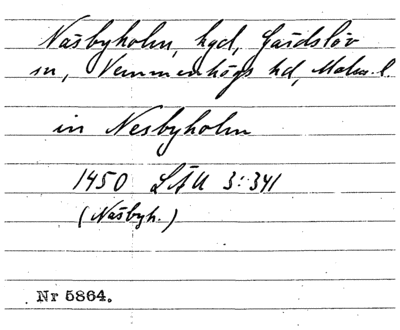 Näsbyholm, hgd, Gärdslöv
sn, Vemmenhögs hd, Malm. l.
in Nesbyholm
1450 LÄU 3:341
(Näsbyh.)
Nr 5864.